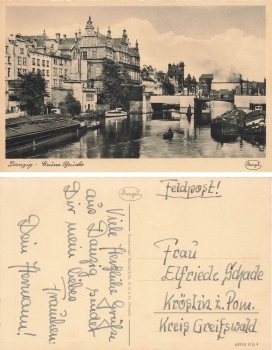 Danzig - Grüne Brücke
Stengel
Feldpost!
Frau
Elfriede Schade
Kröslin i. Pom.
Kreis Greifswald
Viele herzliche Grüße
aus Danzig sendet
Dir mein liebes
Frauchen
Dein Hermann!